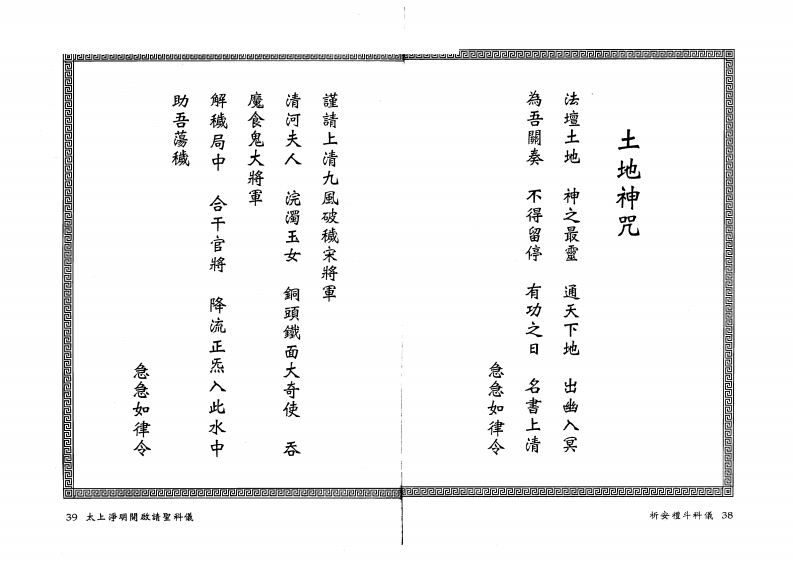 土地神咒
法壇土地　神之最靈　通天下地　出幽入冥
為吾關奏　不得留停　有功之日　名書上清
急急如律令
祈安禮斗科儀 38
謹請上清九風破穢宋將軍
清河夫人　浣濁玉女　銅頭鐵面大奇使　吞
魔食鬼大將軍
解穢局中　合干官將　降流正炁入此水中
助吾蕩穢
急急如律令
39 太上淨明開啟請聖科儀